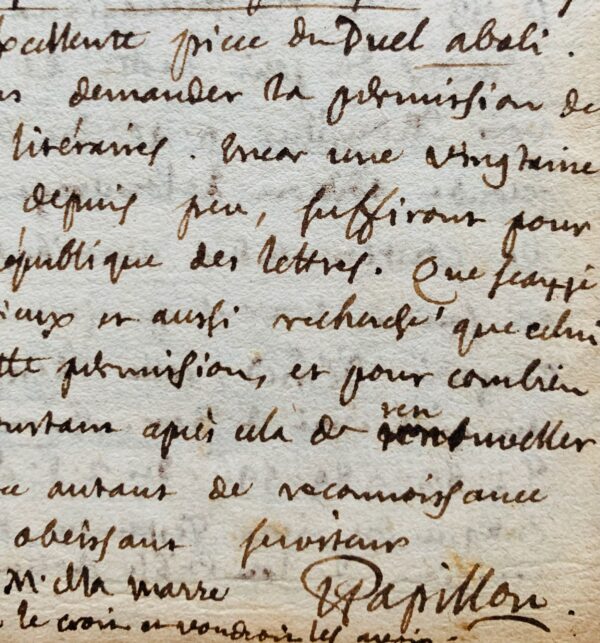 xcellente piece du Duel aboli.
demander la permission de
literaires. Encor une vingtaine
depuis peu, suffiront pour
république des lettres. Que sçay je
ieux et aussi recherché que celui
tte permission, et pour combien
urtant après cela de ren nouveller
autant de reconnoissance
obeissant serviteur
Papillon.
le croit et voudroit les avoir